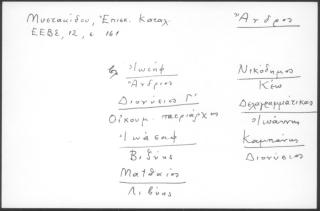 Μυστακίδου, Ἐπισκ. Καταλ.
ΕΕΒΣ, 12, σ 161
Ἄνδρος
Ἰωσήφ
Ἄνδριος
Διονύσιος Γ΄
Οἰκουμ. πατριάρχης
Ἰωάσαφ
Βιζύης
Ματθαῖος
Λιβύης
Νικόδημος
Κέω
Δεχγραμμάτικας
Ἰωάννης
Καμπάνης
Διονύσιος